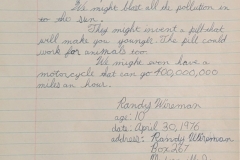 We might blast all the pollution in
to the sun.
They might invent a pill that
will make you younger. The pill could
work for animals too.
We might even have a
motorcycle that can go 400,000,000
miles an hour.
Randy Wireman
age: 10
date: April 30, 1976
address: Randy Wireman
Box 267